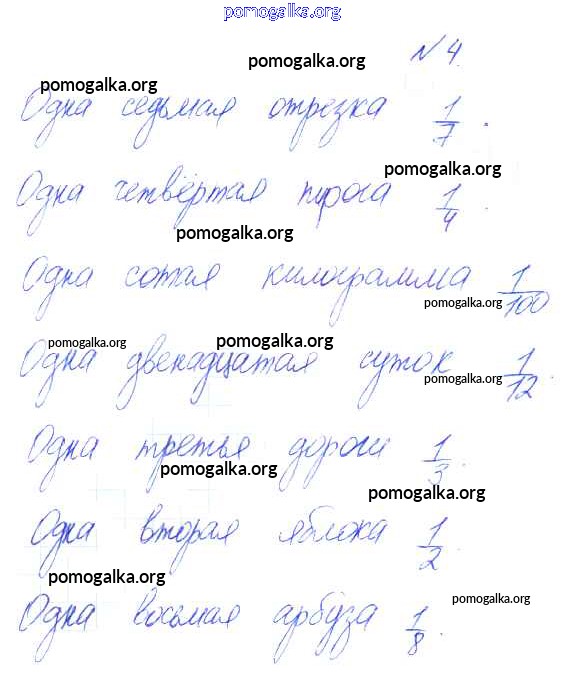 pomogalka.org
pomogalka.org N 4.
pomogalka.org
Одна седьмая отрезка 1/7.
pomogalka.org
Одна четвёртая пирога 1/4.
pomogalka.org
Одна сотая килограмма 1/100
pomogalka.org
pomogalka.org pomogalka.org
Одна двенадцатая суток 1/12.
pomogalka.org
Одна третья дороги 1/3.
pomogalka.org
pomogalka.org
Одна вторая яблока 1/2.
pomogalka.org
pomogalka.org
Одна восьмая арбуза 1/8.